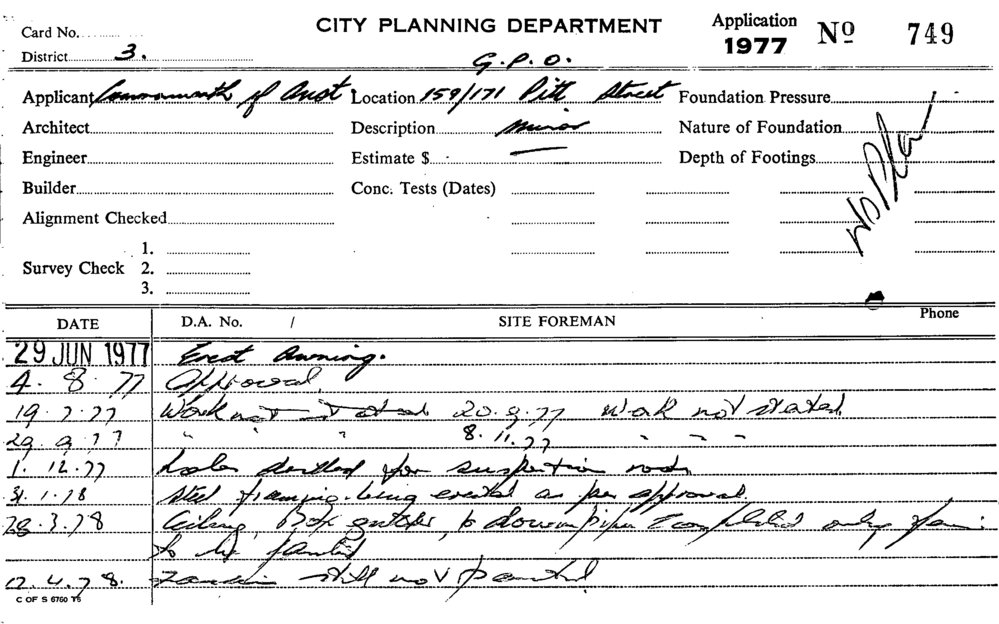 Card No.
CITY PLANNING DEPARTMENT
Application 1977 No 749
District 3.
G.P.O.
Applicant Commonwealth of Aust Location 159/171 Pitt Street Foundation Pressure
Architect Description minor Nature of Foundation
Engineer Estimate $ Depth of Footings
No Plan
Builder Conc. Tests (Dates)
Alignment Checked
1.
Survey Check 2.
3.
Phone
DATE D.A. No. / SITE FOREMAN
29 JUN 1977 Erect Awning.
4. 8. 77 Approval
19.7.77 Work not started 20.9.77 Work not started
29.9.77 " " " 8.11.77 " " "
1.12.77 holes drilled for suspention rods
31.1.78 Steel framing being erected as per approval.
28.3.78 Ceiling, Box gutter, & downpipe completed only
to be painted
12.4.78. still not painted
C OF S 6760 T5